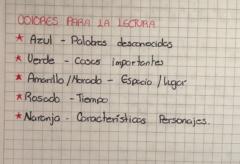 COLORES PARA LA LECTURA
★ Azul - Palabras desconocidas
★ Verde - Cosas importantes
★ Amarillo/Morado - Espacio/lugar
★ Rosado - Tiempo
★ Naranja - Características Personajes.